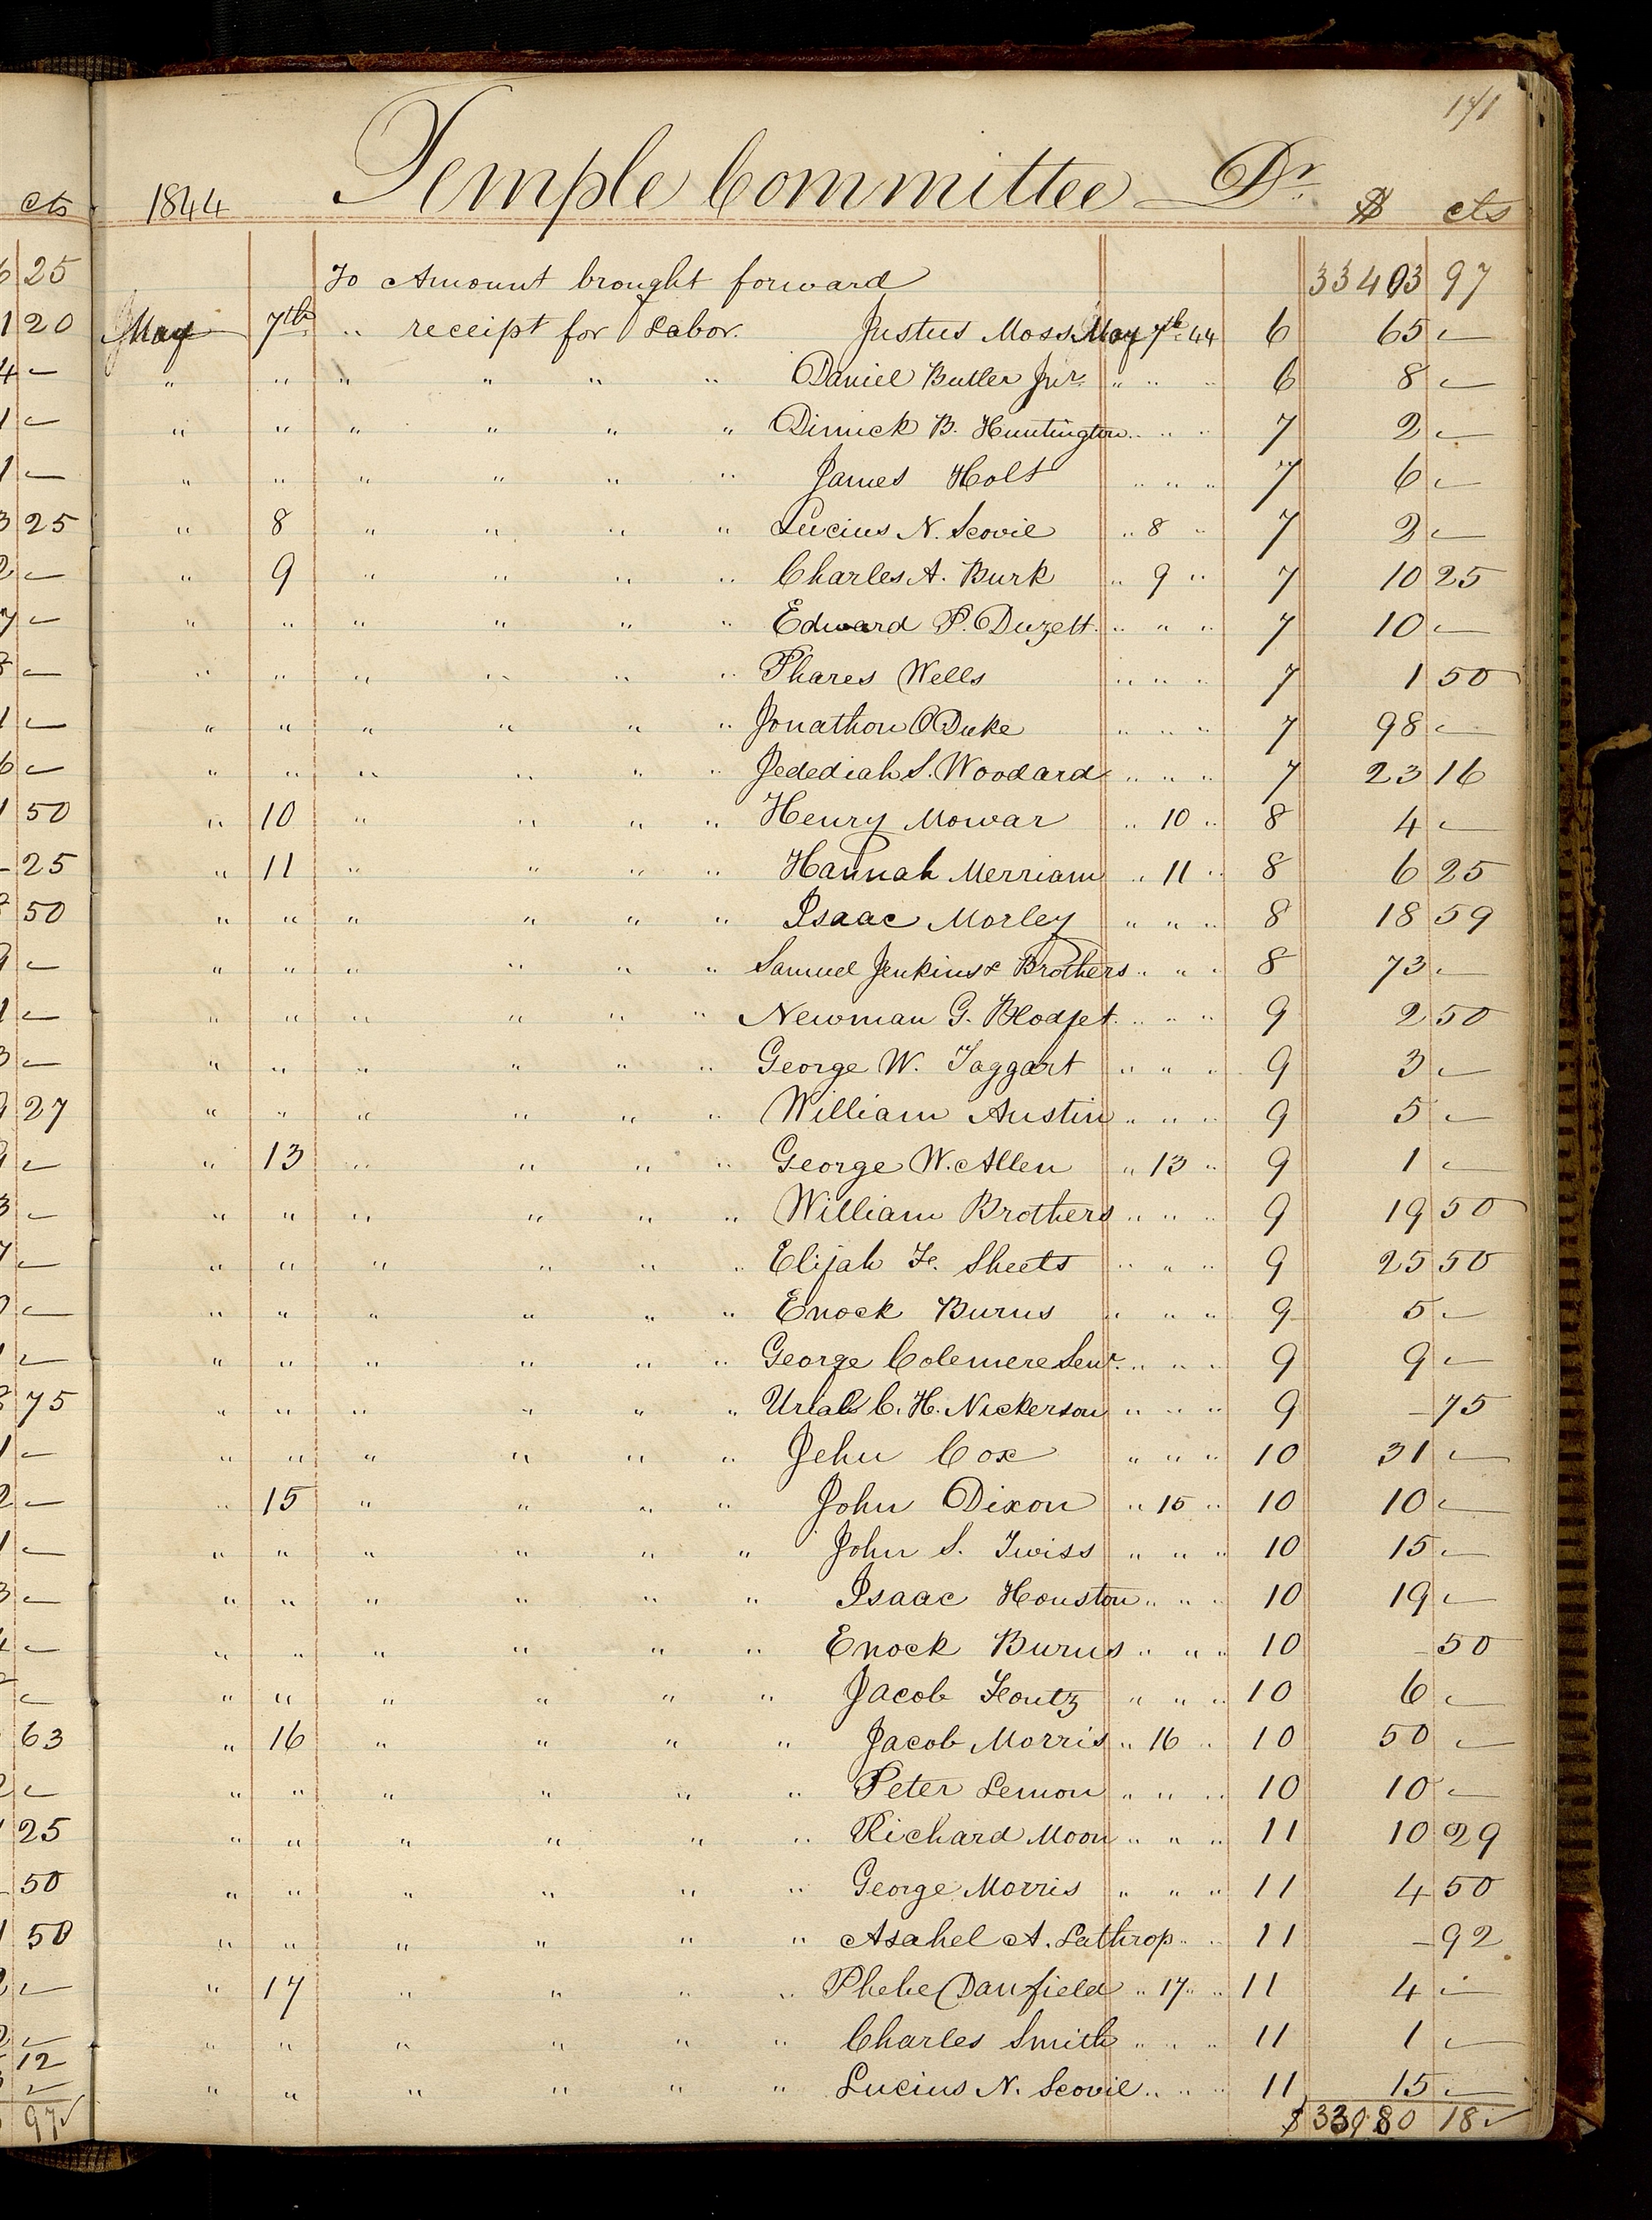 171
1844 Temple Committee Dr. $ cts
To Amount brought forward 33403 97
May 7th " receipt for Labor. Justus Moss May 7th 44 6 65 –
" " " " " " Daniel Butler Jnr. " " " 6 8 –
" " " " " " Dimick B. Huntington " " " 7 2 –
" " " " " " James Holt " " " 7 6 –
" 8 " " " " Lucius N. Scovil " 8 " 7 2 –
" 9 " " " " Charles A. Burk " 9 " 7 10 25
" " " " " " Edward P. Duzett " " " 7 10 –
" " " " " " Phares Wells " " " 7 1 50
" " " " " " Jonathon O Duke " " " 7 98 –
" " " " " " Jedediah S. Woodard " " " 7 23 16
" 10 " " " " Henry Mowar " 10 " 8 4 –
" 11 " " " " Hannah Merriam " 11 " 8 6 25
" " " " " " Isaac Morley " " " 8 18 59
" " " " " " Samuel Jenkins & Brothers " " " 8 73 –
" " " " " " Newman G. Blodget " " " 9 2 50
" " " " " " George W. Taggart " " " 9 3 –
" " " " " " William Austin " " " 9 5 –
" 13 " " " " George W. Allen " 13 " 9 1 –
" " " " " " William Brothers " " " 9 19 50
" " " " " " Elijah F. Sheets " " " 9 25 50
" " " " " " Enock Burns " " " 9 5 –
" " " " " " George Colemere Senr. " " " 9 9 –
" " " " " " Urial C. H. Nickerson " " " 9 – 75
" " " " " " Jehu Cox " " " 10 31 –
" 15 " " " " John Dixon " 15 " 10 10 –
" " " " " " John S. Twiss " " " 10 15 –
" " " " " " Isaac Houston " " " 10 19 –
" " " " " " Enock Burns " " " 10 – 50
" " " " " " Jacob Foutz " " " 10 6 –
" 16 " " " " Jacob Morris " 16 " 10 50 –
" " " " " " Peter Lemon " " " 10 10 –
" " " " " " Richard Moon " " " 11 10 29
" " " " " " George Morris " " " 11 4 50
" " " " " " Asahel A. Lathrop " " 11 – 92
" 17 " " " " Phebe Danfield " 17 " " 11 4 –
" " " " " " Charles Smith " " " 11 1 –
" " " " " " Lucius N. Scovil " " " 11 15 –
$ 33980 18 ✓